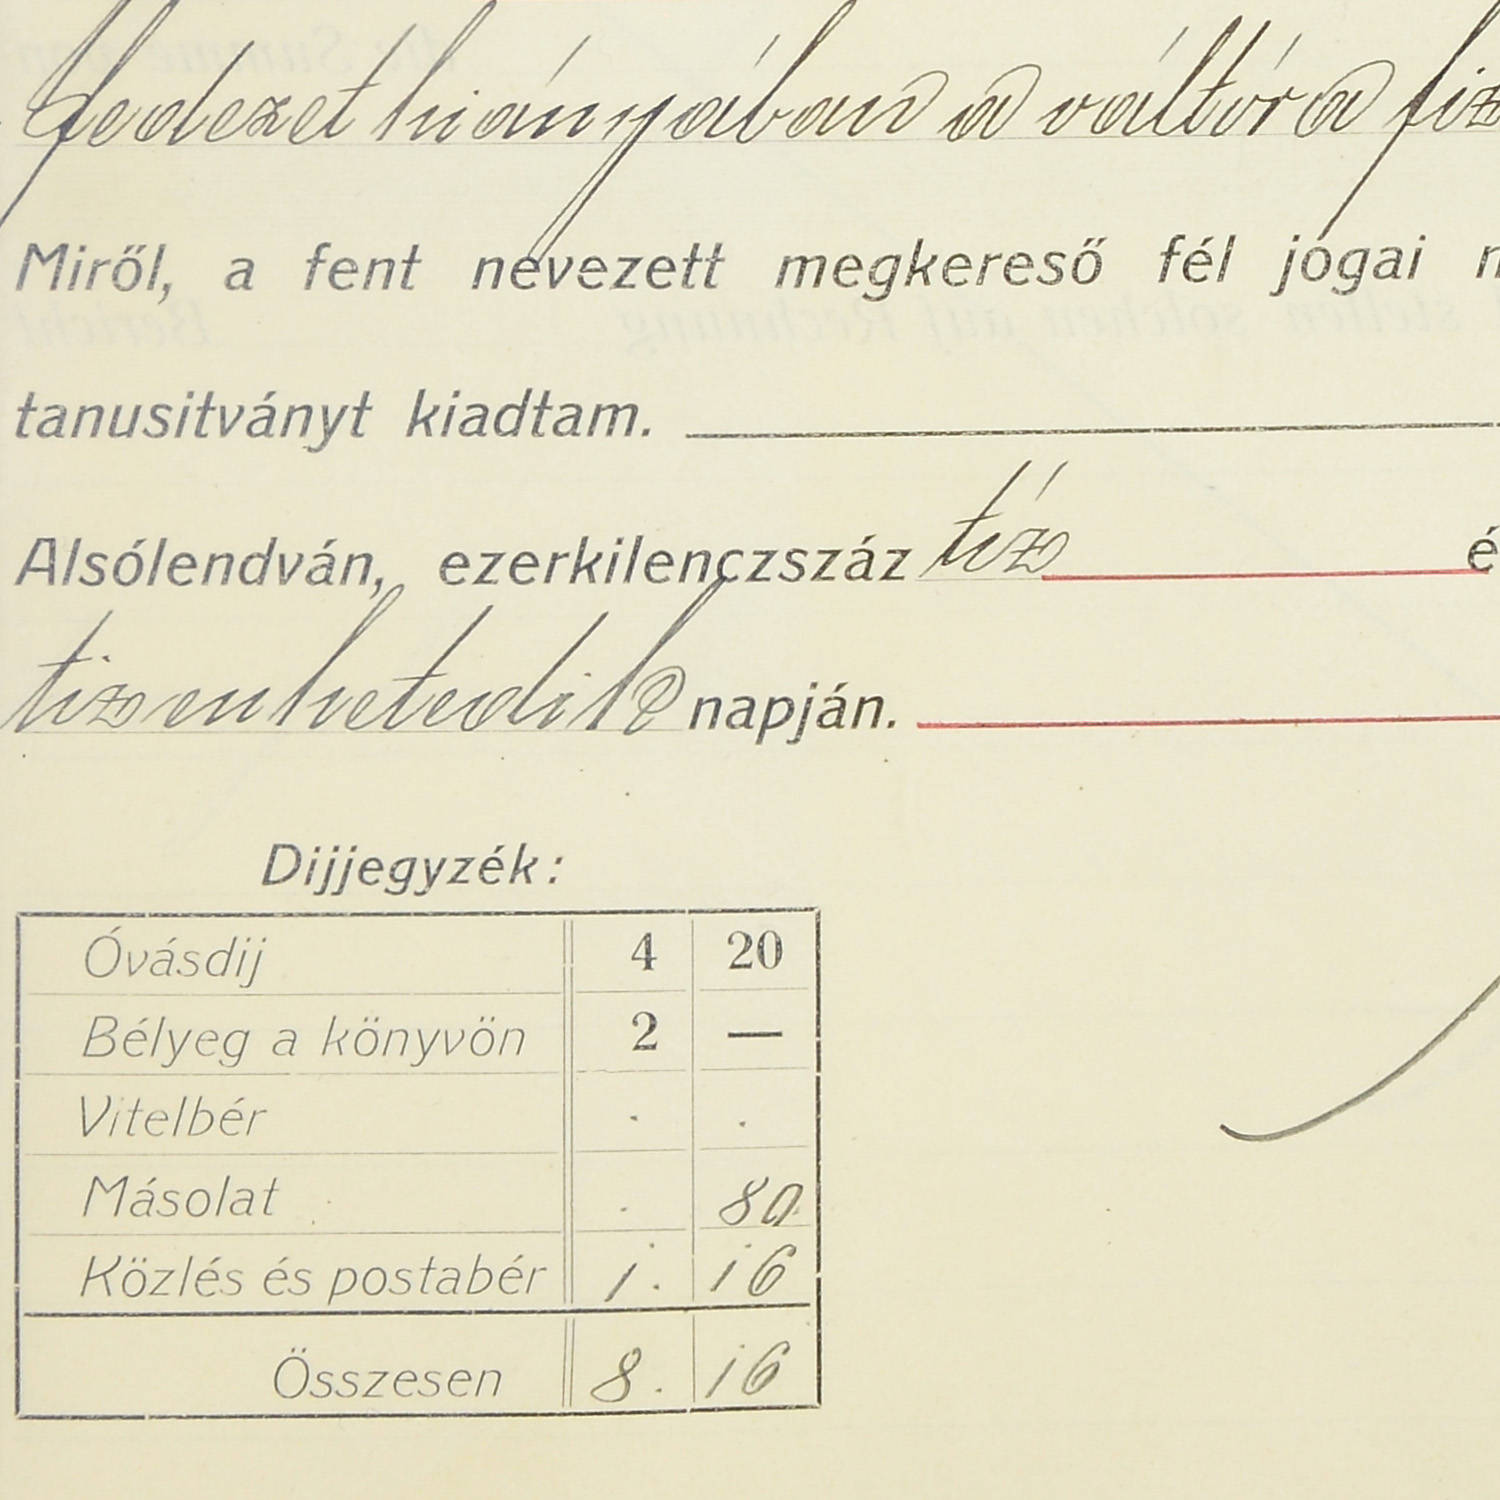 fedezet hiányában a váltóra fiz
Miről, a fent nevezett megkereső fél jogai
tanusitványt kiadtam.
Alsólendván, ezerkilenczszáz tíz é
tizenhetedik napján.
Dijjegyzék:
Óvásdij 4 20
Bélyeg a könyvön 2 —
Vitelbér . .
Másolat . 80
Közlés és postabér 1. 16
Összesen 8. 16